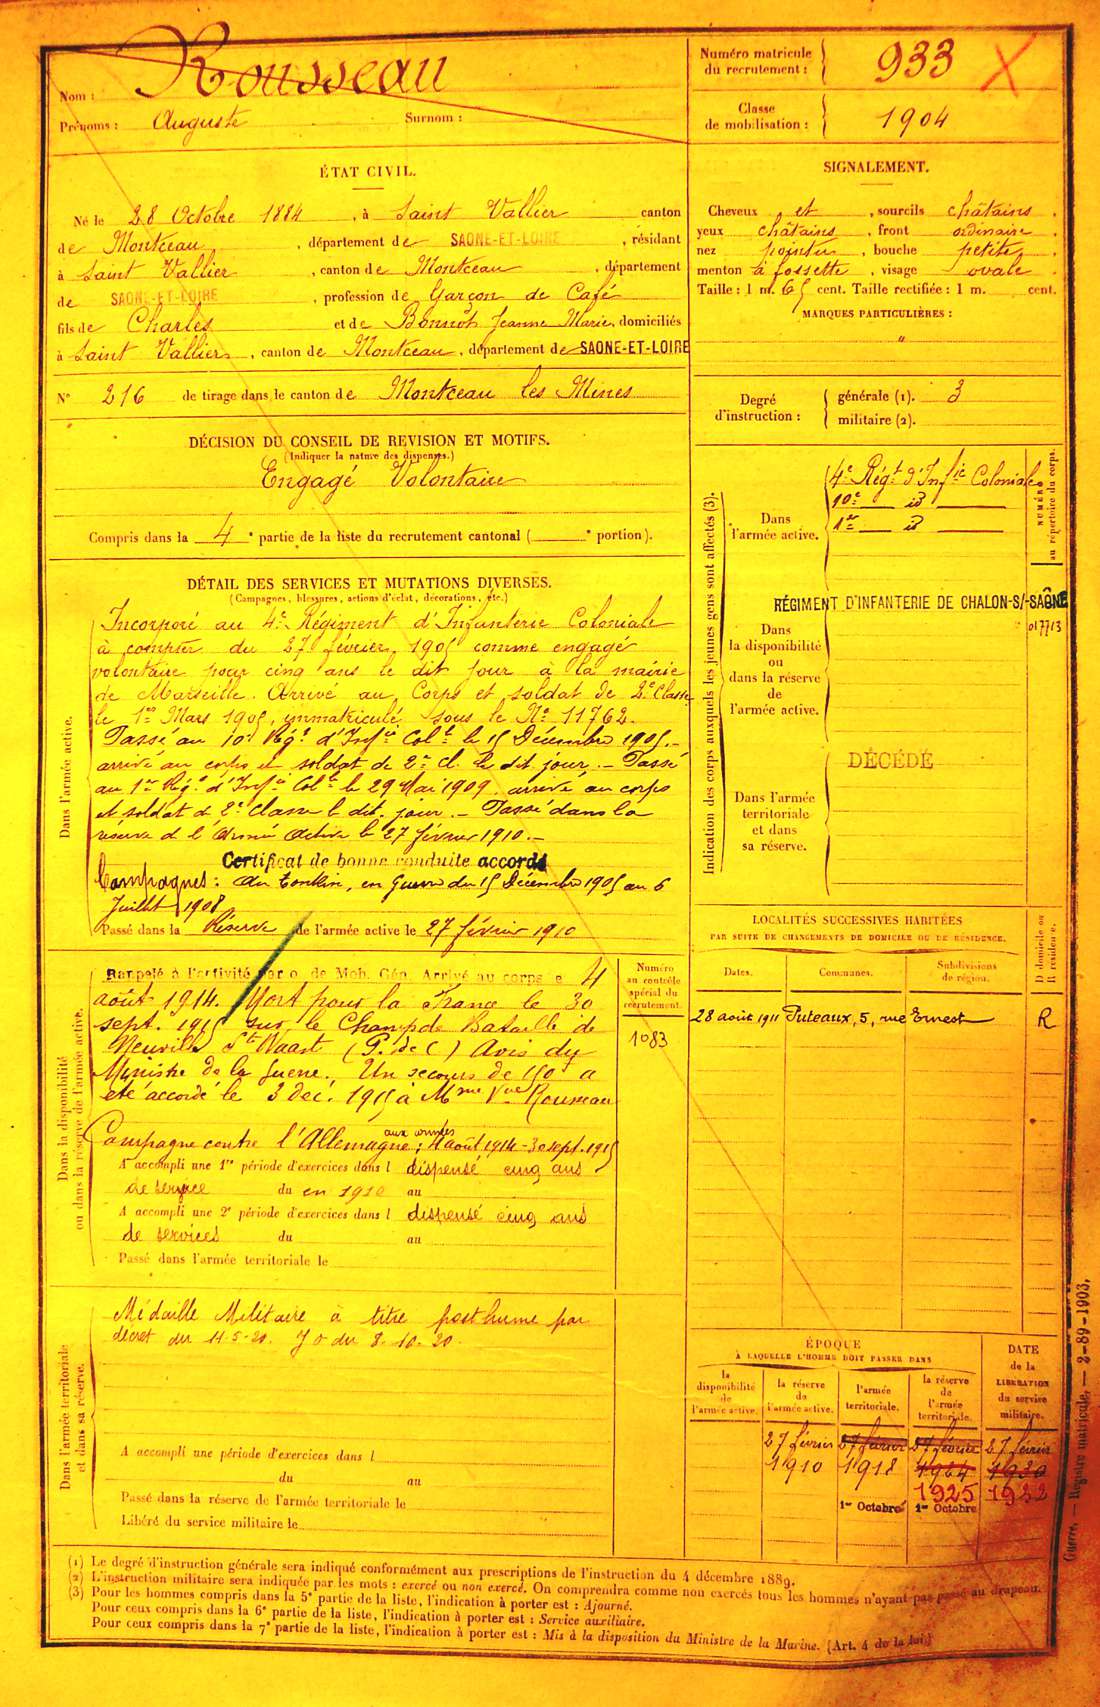 Nom : Rousseau
Prénoms : Auguste Surnom :
Numéro matricule du recrutement : 933
Classe de mobilisation : 1904
ÉTAT CIVIL.
Né le 28 Octobre 1884, à Saint Vallier canton
de Montceau, département de SAONE-ET-LOIRE, résidant
à Saint Vallier, canton de Montceau, département
de SAONE-ET-LOIRE, profession de Garçon de Café
fils de Charles et de Bonnot Jeanne Marie, domiciliés
à Saint Vallier, canton de Montceau, département de SAONE-ET-LOIRE
N° 216 de tirage dans le canton de Montceau les Mines
SIGNALEMENT.
Cheveux et, sourcils châtains,
yeux châtains, front ordinaire,
nez pointu, bouche petite,
menton à fossette, visage ovale.
Taille : 1 m. 65 cent. Taille rectifiée : 1 m. cent.
MARQUES PARTICULIÈRES :
"
Degré d'instruction : générale (1). 3
militaire (2).
DÉCISION DU CONSEIL DE REVISION ET MOTIFS.
(Indiquer la nature des dispenses.)
Engagé Volontaire
Compris dans la 4e partie de la liste du recrutement cantonal ( e portion).
DÉTAIL DES SERVICES ET MUTATIONS DIVERSES.
(Campagnes, blessures, actions d'éclat, décorations, etc.)
Dans l'armée active.
Incorporé au 4e Régiment d'Infanterie Coloniale
à compter du 27 février 1905 comme engagé
volontaire pour cinq ans le dit jour à la mairie
de Marseille. Arrivé au Corps et soldat de 2e Classe
le 1er Mars 1905, immatriculé sous le No 11762.
Passé au 10e Régt d'Infie Colle le 15 Décembre 1905.-
arrivé au corps et soldat de 2e cl. le dit jour. - Passé
au 1er Régt d'Infie Colle le 29 Mai 1909. arrivé au corps
et soldat de 2e classe le dit jour. - Passé dans la
réserve de l'Armée active le 27 février 1910.-
Certificat de bonne conduite accordé
Campagnes : Au Tonkin, en Guerre du 15 Décembre 1905 au 6
Juillet 1908
Passé dans la Réserve de l'armée active le 27 février 1910
Indication des corps auxquels les jeunes gens sont affectés (3).
Dans l'armée active.
4e Régt d'Infie Coloniale
10e id
1er id
NUMÉRO au répertoire du corps.
RÉGIMENT D'INFANTERIE DE CHALON-S/-SAÔNE
017713
Dans la disponibilité ou dans la réserve de l'armée active.
DÉCÉDÉ
Dans l'armée territoriale et dans sa réserve.
Dans la disponibilité ou dans la réserve de l'armée active.
Rappelé à l'activité par o. de Mob. Gén. Arrivé au corps le 4
août 1914. Mort pour la France le 30
sept. 1915 sur le Champ de Bataille de
Neuville St Waast (P. de C) Avis du
Ministre de la Guerre. Un secours de 150 a
été accordé le 3 déc. 1915 à Mme Vve Rousseau
Campagne contre l'Allemagne aux armées : 4 août 1914 - 30 sept. 1915
A accompli une 1re période d'exercices dans l dispensé cinq ans
de service du en 1910 au
A accompli une 2e période d'exercices dans l dispensé cinq ans
de services du au
Passé dans l'armée territoriale le
Numéro au contrôle spécial du recrutement.
1083
LOCALITÉS SUCCESSIVES HABITÉES
PAR SUITE DE CHANGEMENTS DE DOMICILE OU DE RÉSIDENCE.
Dates. Communes. Subdivisions de région. D domicile ou R résidence.
28 août 1911 Puteaux, 5, rue Ernest R
Dans l'armée territoriale et dans sa réserve.
Médaille Militaire à titre posthume par
décret du 11-5-20. JO du 8-10-20.
A accompli une période d'exercices dans l
du au
Passé dans la réserve de l'armée territoriale le
Libéré du service militaire le
ÉPOQUE
À LAQUELLE L'HOMME DOIT PASSER DANS
la disponibilité de l'armée active.
la réserve de l'armée active.
l'armée territoriale.
la réserve de l'armée territoriale.
DATE de la LIBÉRATION du service militaire.
27 février 27 février 27 février 27 février
1910 1918 1924 1930
1925 1932
1er Octobre 1er Octobre
Guerre. — Registre matricule. — 2-89-1903.
(1) Le degré d'instruction générale sera indiqué conformément aux prescriptions de l'instruction du 4 décembre 1889.
(2) L'instruction militaire sera indiquée par les mots : exercé ou non exercé. On comprendra comme non exercés tous les hommes n'ayant pas passé au drapeau.
(3) Pour les hommes compris dans la 5e partie de la liste, l'indication à porter est : Ajourné.
Pour ceux compris dans la 6e partie de la liste, l'indication à porter est : Service auxiliaire.
Pour ceux compris dans la 7e partie de la liste, l'indication à porter est : Mis à la disposition du Ministre de la Marine. (Art. 4 de la loi)